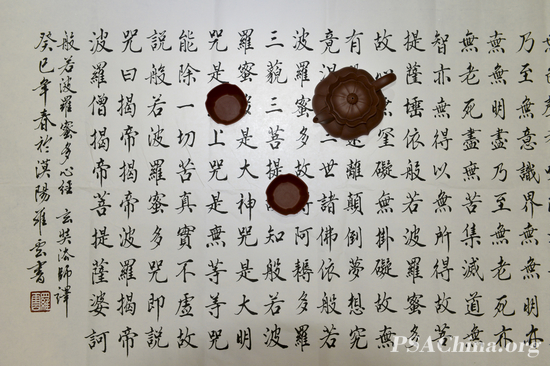 乃至無意識界無無明亦
無無明盡乃至無老死亦
無老死盡無苦集滅道無
智亦無得以無所得故菩
提薩埵依般若波羅蜜多
故罣礙無掛礙故無
有離顛倒夢想究
竟涅三世諸佛依般若
波羅蜜多故阿耨多羅
三藐三菩提故知般若波
羅蜜多是大神咒是大明
咒是上咒是無等等咒
能除一切苦真實不虛故
說般若波羅蜜多咒即說
咒曰揭帝揭帝波羅揭帝
波羅僧揭帝菩提薩婆訶
般若波羅蜜多心經 玄奘法師譯
癸巳年春於漠陽雅雲書
PSAChina.org